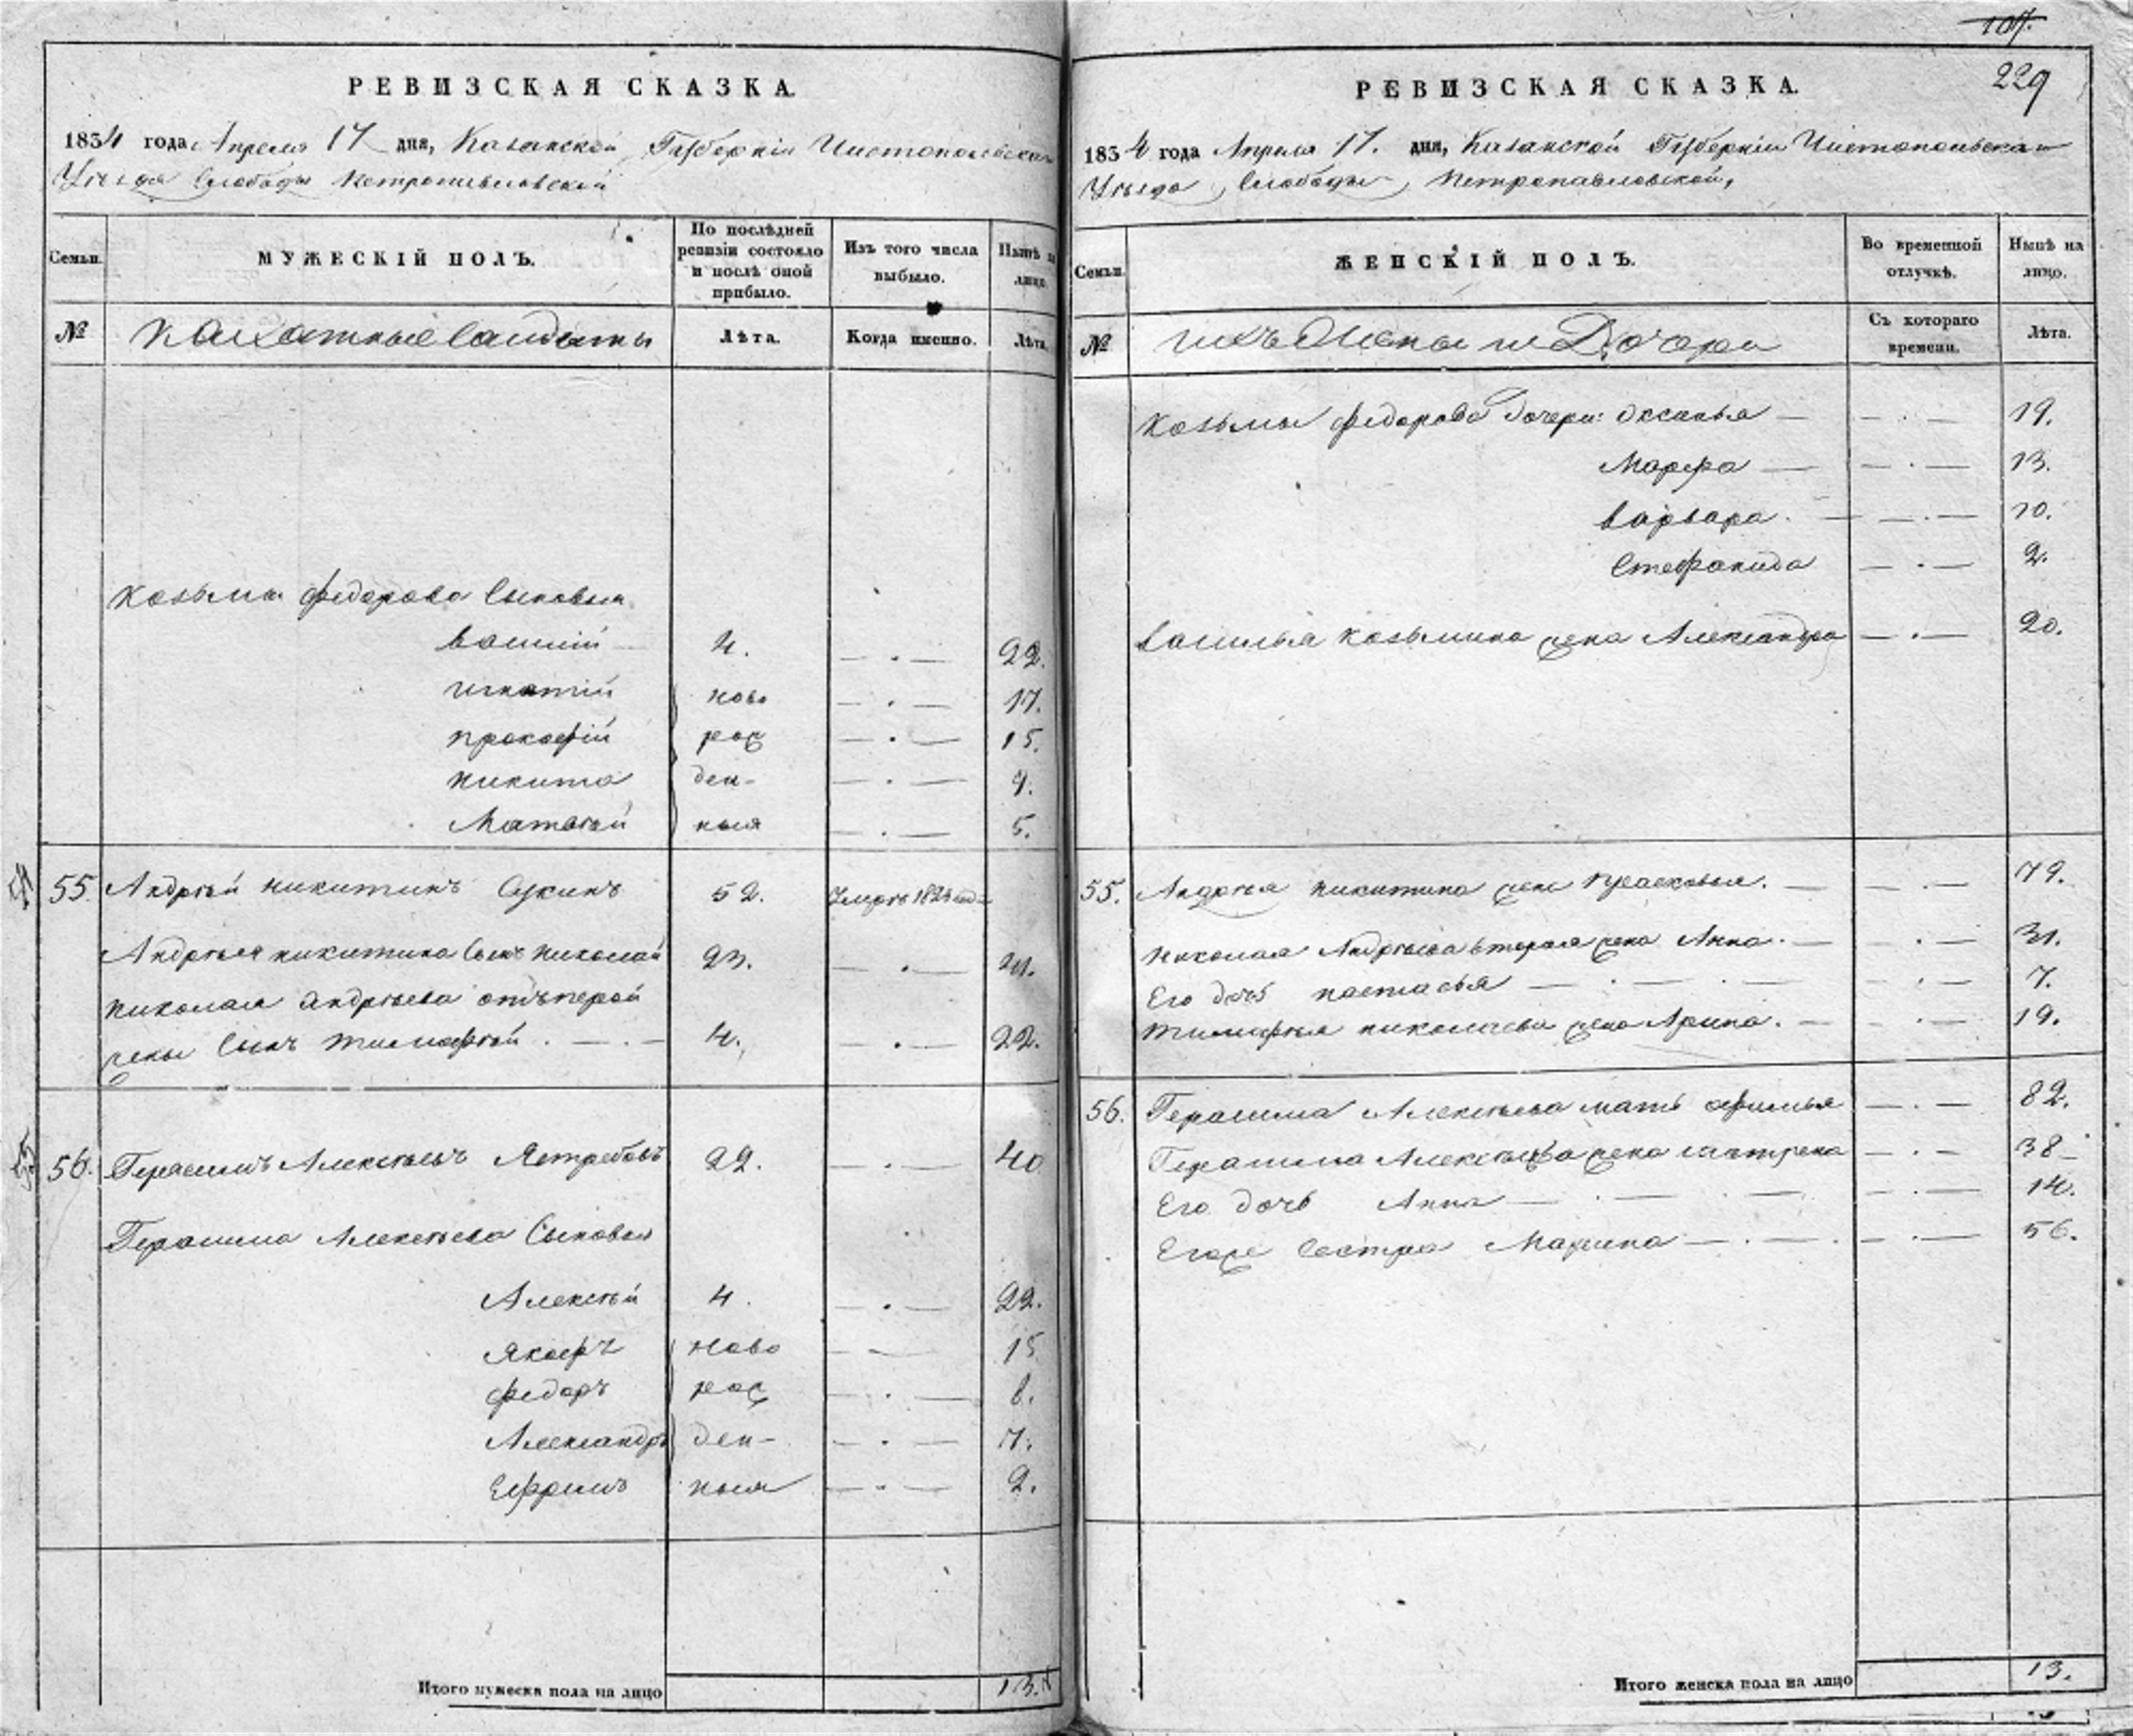 РЕВИЗСКАЯ СКАЗКА.
1834 года Апреля 17 дня, Казанской Губерніи Чистопольскаго
Уѣзда Слободы Петропавловской
Семьи.
МУЖЕСКІЙ ПОЛЪ.
По послѣдней ревизіи состояло и послѣ оной прибыло.
Изъ того числа выбыло.
Нынѣ на лицо.
№
Пахатные Солдаты
Лѣта.
Когда именно.
Лѣта.
Козьмы Федорова Сыновья
Василій 4. 22.
Игнатій ново 17.
Прокофій рож 15.
Никита ден- 9.
Матвѣй ныя 5.
54
55. Андрѣй Никитинъ 52. Умеръ 1824 года
Андрѣя Никитина Сынъ Николай 23. 41.
Николая Андрѣева отъ первой
жены Сынъ Тимофѣй 4. 22.
55
56. Герасимъ Алексѣевъ Ястребовъ 22. 40
Герасима Алексѣева Сыновья
Алексѣй 4. 22.
Якофъ ново 15
Федоръ рож 8.
Александръ ден- 7.
Ефримъ ныя 2.
Итого мужеска пола на лицо 13.
107.
229
РЕВИЗСКАЯ СКАЗКА.
1834 года Апреля 17. дня, Казанской Губерніи Чистопольскаго
Уѣзда, Слободы, Петропавловской,
Семьи.
ЖЕНСКІЙ ПОЛЪ.
Во временной отлучкѣ.
Нынѣ на лицо.
№
ихъ Жены и Дочери
Съ котораго времени.
Лѣта.
Козьмы Федорова дочери: Оксинья 19.
Марфа 13.
Варвара. 10.
Стефанида 2.
Василья Козьмина жена Александра 20.
55. Андрѣя Никитина жена Прасковья. 79.
Николая Андрѣева вторая жена Анна. 31.
Его дочь Настасья 7.
Тимофѣя Николаева жена Арина. 19.
56. Герасима Алексѣева мать Афимья 82.
Герасима Алексѣева жена Матрена 38
Его дочь Анна 14.
Егоже Сестра Марина 56.
Итого женска пола на лицо 13.